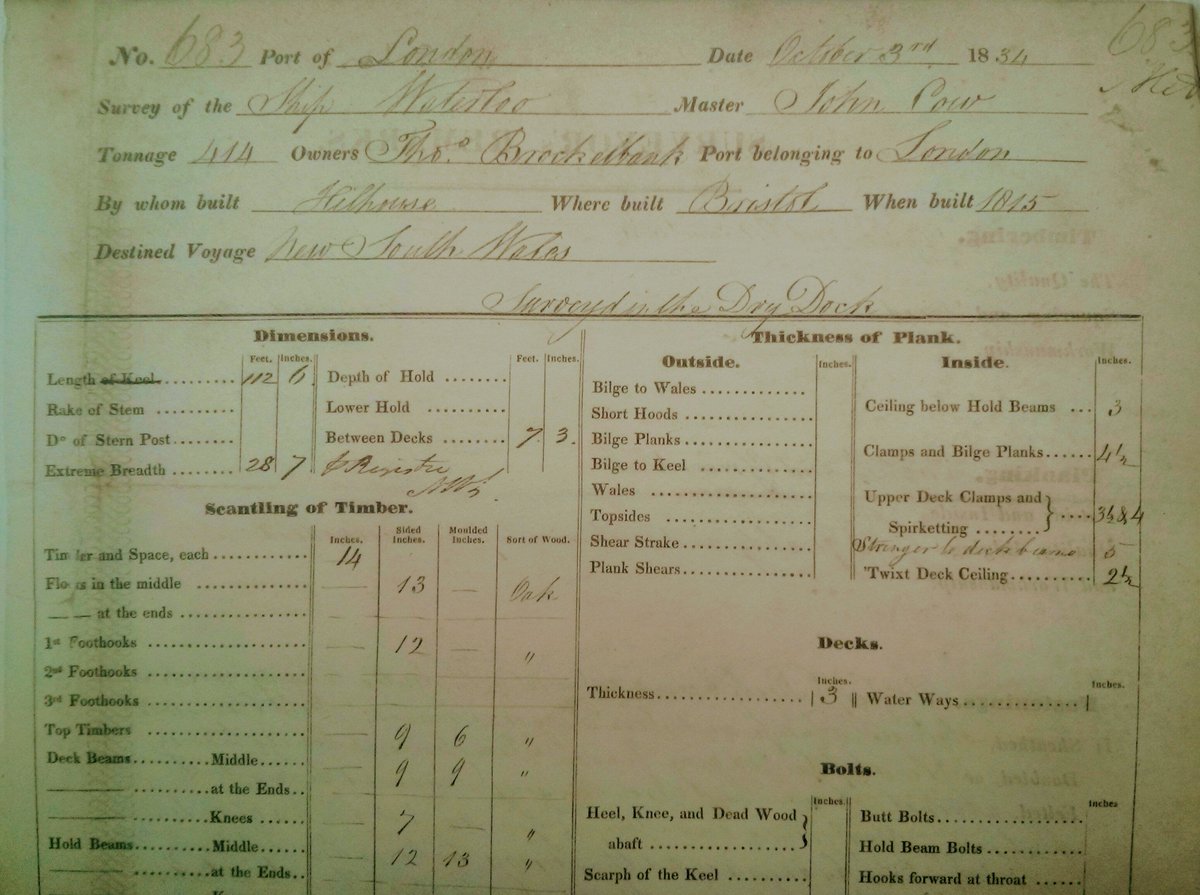 No. 683 Port of London Date October 3rd 1834 683
Survey of the Ship Waterloo Master John Cow
Tonnage 414 Owners Thos. Brockelbank Port belonging to London
By whom built Hilhouse Where built Bristol When built 1815
Destined Voyage New South Wales
Surveyd in the Dry Dock
Dimensions.
Feet. Inches.
Length of Keel 112 6
Rake of Stem
Do of Stern Post
Extreme Breadth 28 7
Feet. Inches.
Depth of Hold
Lower Hold
Between Decks 7 3
Registre
Scantling of Timber.
Inches. Sided Inches. Moulded Inches. Sort of Wood.
Timber and Space, each 14
Floors in the middle 13 — Oak
— — at the ends
1st Foothooks 12 — "
2nd Foothooks
3rd Foothooks
Top Timbers 9 6 "
Deck Beams Middle 9 9 "
at the Ends
Knees 7 — "
Hold Beams Middle 12 13 "
at the Ends
Thickness of Plank.
Outside. Inches.
Bilge to Wales
Short Hoods
Bilge Planks
Bilge to Keel
Wales
Topsides
Shear Strake
Plank Shears
Inside. Inches.
Ceiling below Hold Beams 3
Clamps and Bilge Planks 4½
Upper Deck Clamps and
Spirketting 3½ & 4
Stringer to deck beams 5
'Twixt Deck Ceiling 2½
Decks.
Inches. Inches.
Thickness 3 Water Ways
Bolts.
Inches. Inches
Heel, Knee, and Dead Wood
abaft
Scarph of the Keel
Butt Bolts
Hold Beam Bolts
Hooks forward at throat